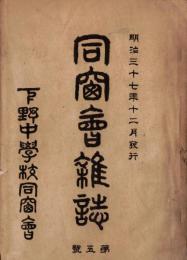 明治三十七年十二月發行
同窗會雜誌
第五號
下野中學校同窗會